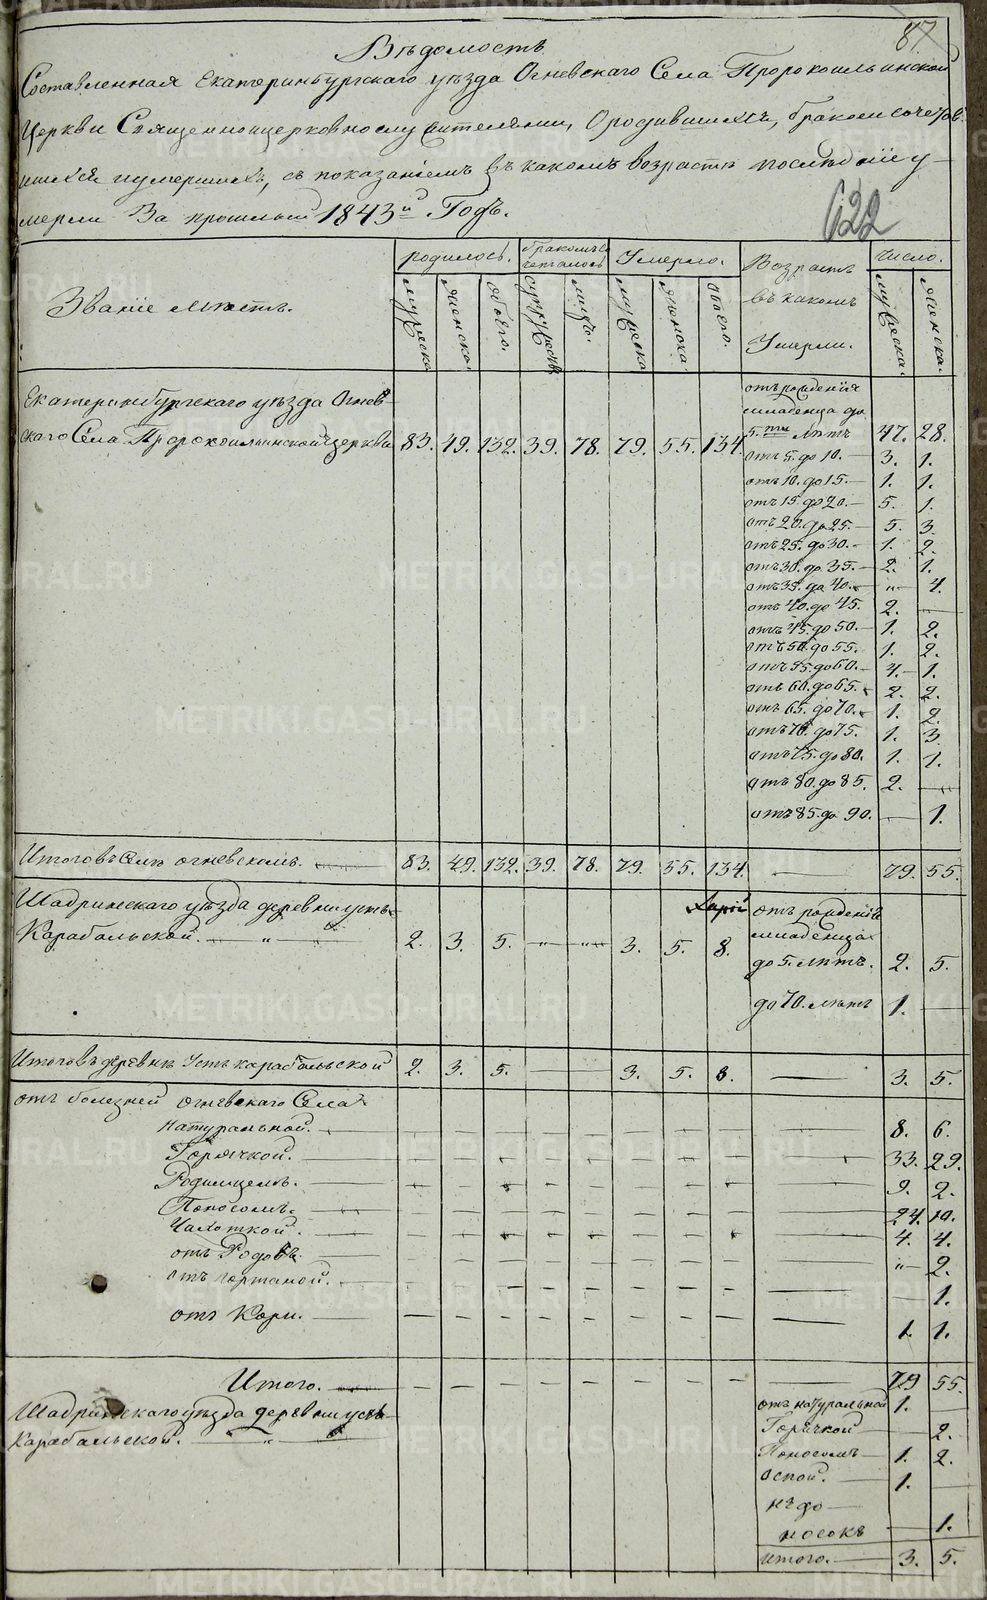 87
Вѣдомость
Составленная Екатеринбургскаго уѣзда Огневскаго Села Пророкоильинской
Церкви Священноицерковнослужителями, Ородившихся, бракомсочетав
шихся иумершихъ, съ показаніемъ въ какомъ возрастѣ послѣдніе у
мерли За прошлый 1843й Годъ.
622
Званіе мѣстъ.
родилось.
бракомъсо
четалось
Умерло.
Возрастъ
въ какомъ
Умерли.
число.
мужеска
женска.
обоего.
супружествъ
лицъ.
мужеска
женска
обоего.
мужеска.
женска.
Екатеринбургскаго уѣзда Огнев
скаго Села Пророкоильинской церкви 83. 49. 132. 39. 78. 79. 55. 134.
отъ рожденія
младенца до
5.ти лѣтъ 47. 28.
отъ 5. до 10. — 3. 1.
отъ 10. до 15. — 1. 1.
отъ 15. до 20. — 5. 1.
отъ 20. до 25. — 5. 3.
отъ 25. до 30. — 1. 2.
отъ 30. до 35. — 2. 1.
отъ 35. до 40. — „ — 4.
отъ 40. до 45. 2. —
отъ 45. до 50. — 1. 2.
отъ 50. до 55. — 1. 2.
отъ 55. до 60. — 4. 1.
отъ 60. до 65. 2. 2.
отъ 65. до 70. 1. 2.
отъ 70. до 75. 1. 3.
отъ 75. до 80. 1. 1.
отъ 80. до 85. 2. —
отъ 85. до 90. — 1.
Итого въ Селѣ огневскомъ. — 83. 49. 132. 39. 78. 79. 55. 134. — 79. 55.
Шадринскаго уѣзда деревни усть
Карабольской. — „ — „ 2. 3. 5. — „ — „ — 3. 5. 8.
отъ рожденія
младенца
до 5. лѣтъ. 2. 5.
до 70. лѣтъ 1. —
Итого въ деревнѣ Усть карабольской 2. 3. 5. 3. 5. 8. — 3. 5.
отъ болезней огневскаго Села
натуральной. — 8. 6.
Горячкой. — 33. 29.
Родимцемъ. — 9. 2.
Поносомъ. — 24. 10.
Чахоткой. — 4. 4.
отъ Родовъ. — „ — 2.
отъ гортаной. — 1.
отъ Кори. — 1. 1.
Итого. — 79 55.
Шадринскаго уѣзда деревни усть
Карабольской. — „
отъ натуральной 1. —
Горячкой — 2.
Поносомъ 1. 2.
оспой. 1. —
недо
носокъ — 1.
итого. — 3. 5.
METRIKI.GASO-URAL.RU